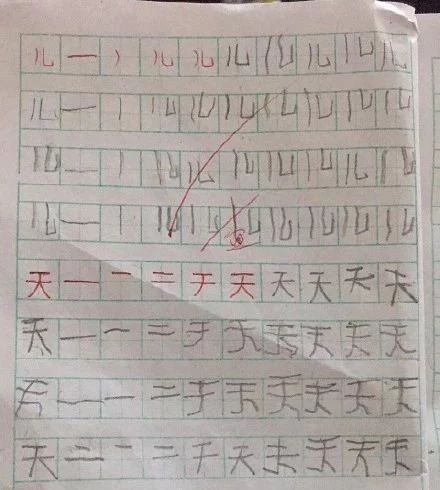 儿 一 丿 儿 儿 儿 儿 儿 儿 儿
儿 一 丨 儿 儿 儿 儿 儿 儿 儿
儿 一 丨 儿 儿 儿 儿 儿 儿 儿
儿 一 丨 儿 儿 儿 儿 儿 儿 儿
天 一 一 二 于 天 天 天 天 天
天 一 一 二 于 天 天 天 天 天
一 一 二 于 天 天 天 天 天
天 二 二 二 于 天 天 天 天 天